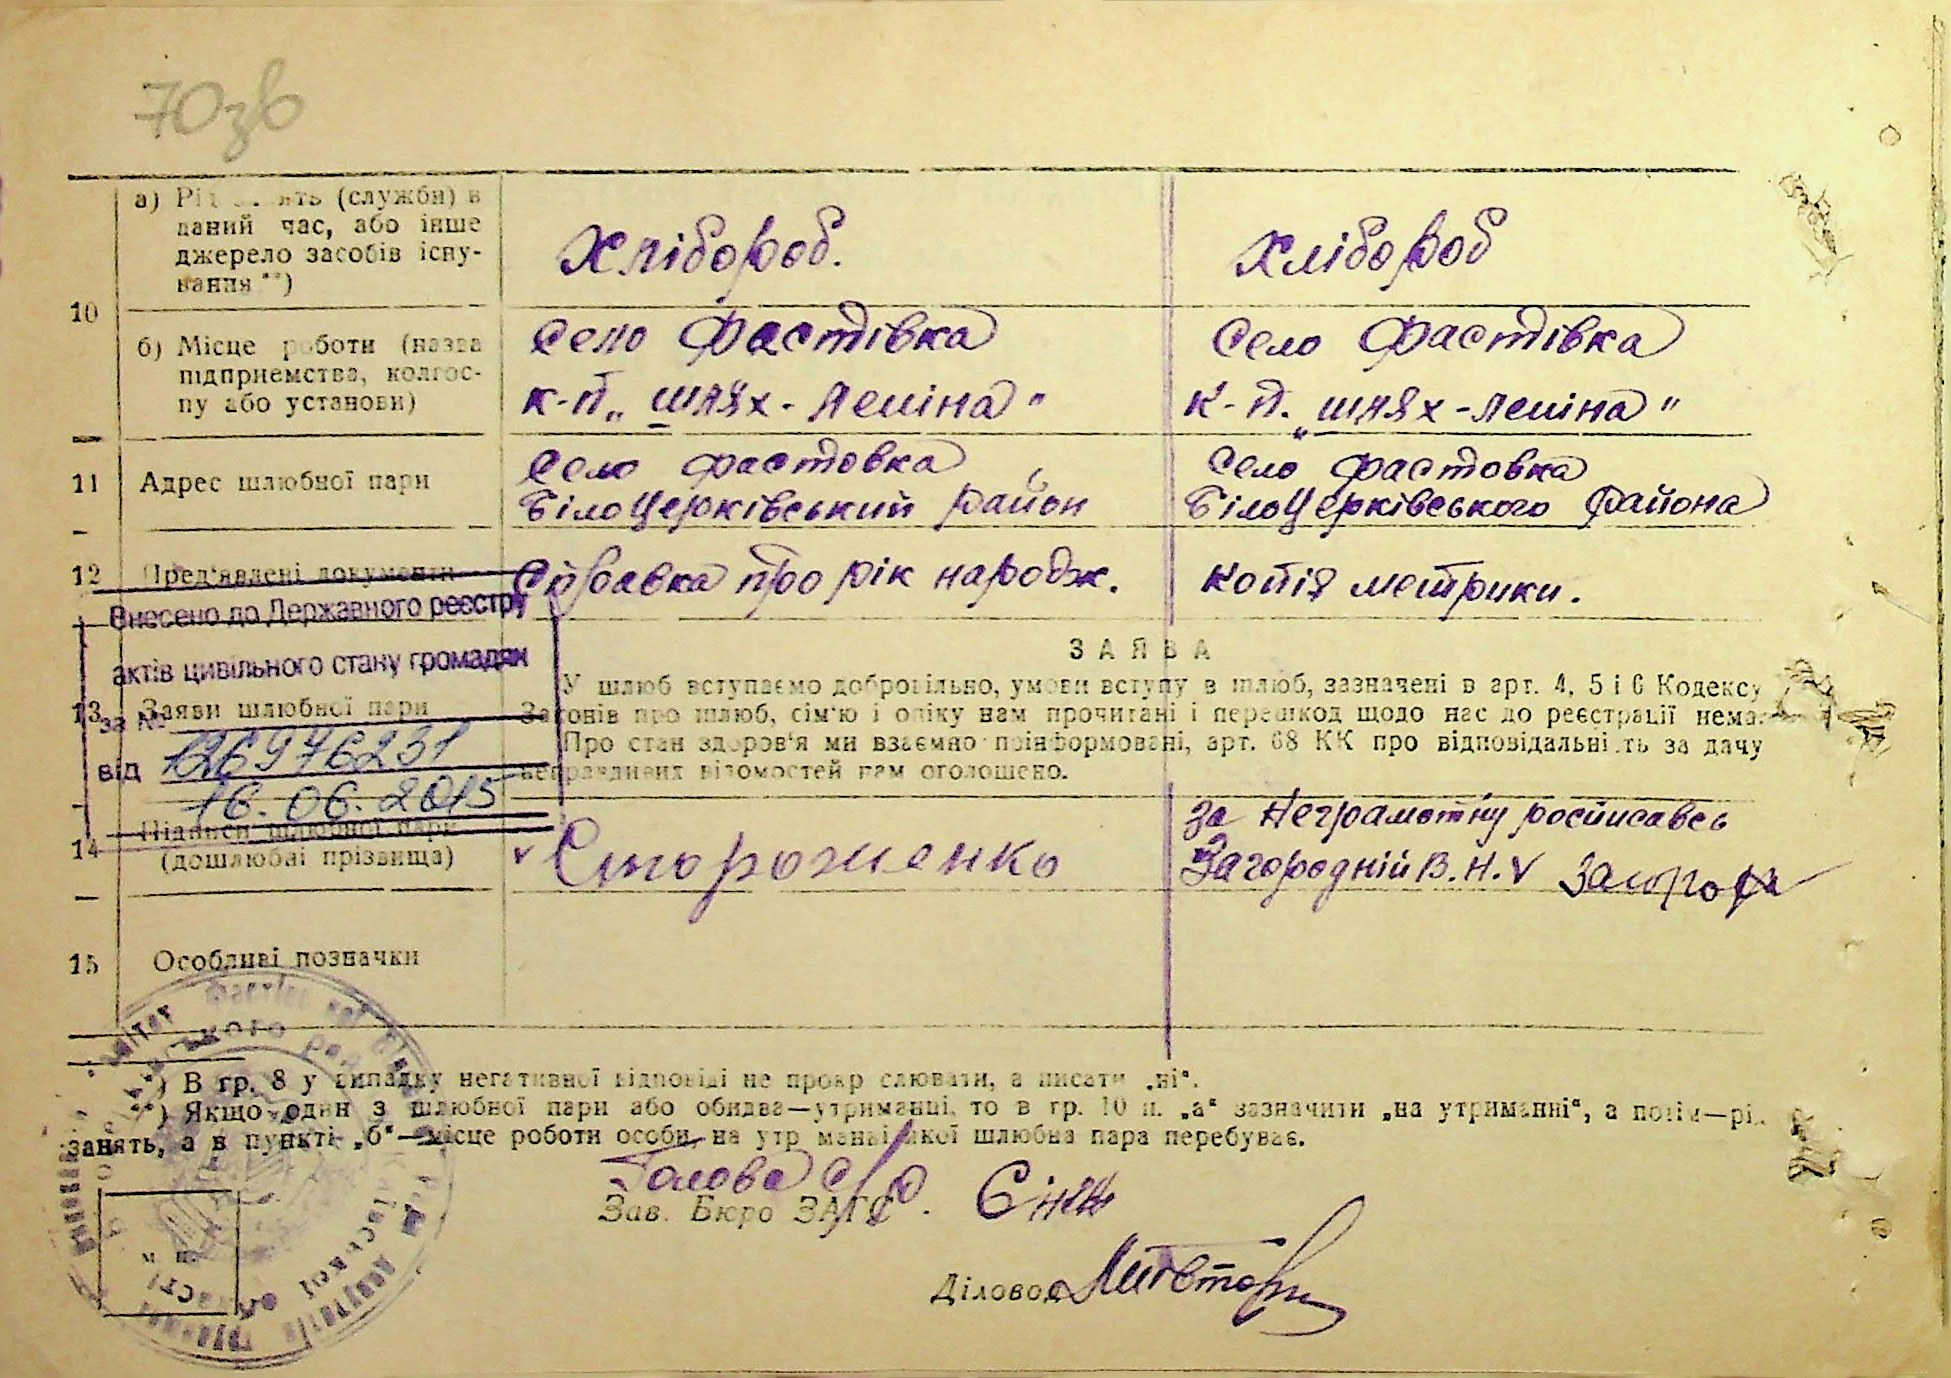 70зв
а) Рід занять (служби) в
даний час, або інше
джерело засобів існу-
вання **)
Хлібороб.
Хлібороб
10
б) Місце роботи (назва
підприємства, колгос-
пу або установи)
Село Фастівка
к-п „Шлях-Леніна"
Село Фастівка
к-п. „Шлях-Леніна"
11
Адрес шлюбної пари
Село Фастовка
БілоЦерківський район
Село Фастовка
БілоЦерківського района
12
Пред'явлені документи
Справка про рік народж.
копія метрики.
Внесено до Державного реєстру
актів цивільного стану громадян
за №
126976231
від
16.06.2015
13
Заяви шлюбної пари
ЗАЯВА
У шлюб вступаємо добровільно, умови вступу в шлюб, зазначені в арт. 4, 5 і 6 Кодексу
Законів про шлюб, сім'ю і опіку нам прочитані і перешкод щодо нас до реєстрації нема
Про стан здоров'я ми взаємно поінформовані, арт. 68 КК про відповідальність за дачу
неправдивих відомостей нам оголошено.
14
Підписи шлюбної пари
(дошлюбні прізвища)
v Стороженко
за неграмотну росписавсь
Загородній В. Н. v Загород
15
Особливі позначки
*) В гр. 8 у випадку негативної відповіді не прокреслювати, а писати „ні".
**) Якщо один з шлюбної пари або обидва—утриманці, то в гр. 10 п. „а" зазначити „на утриманні", а потім—рід
занять, а в пункті „б"—місце роботи особи, на утриманні якої шлюбна пара перебуває.
Голова с/р.
Зав. Бюро ЗАГС
Діловод
м п.